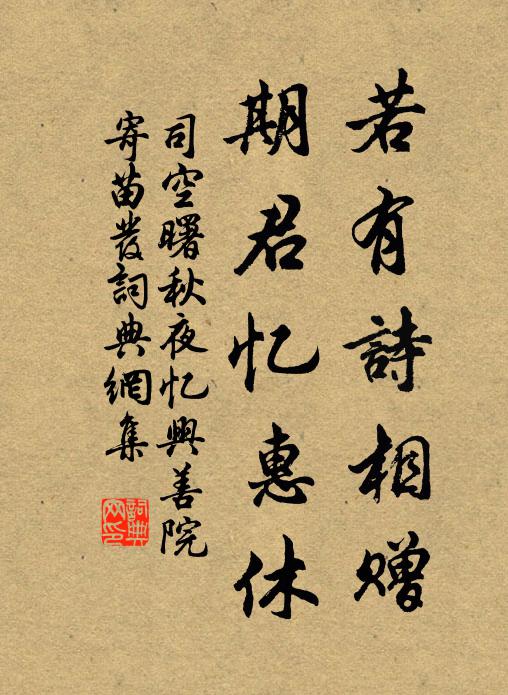 若有詩相赠
期君忆惠休
司空曙秋夜忆興善院
寄苗發詞典網集
詞典
网印